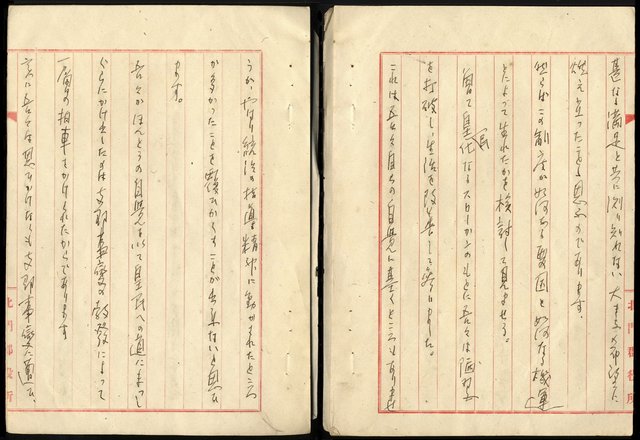 甚なる満足と共に測り知れない大きな希望に
燃え立ったことと思ふのであります。
然らばこの制度が如何なる要因と如何なる機運
によって生れたかを検討して見ませう。
曽て皇民化なるスローガンのもとに吾々は陋習
を打破し、生活を改善して参りました。
これは吾々自らの自覚に基くところもありませ
うが、やはり統治の指導精神に動かされたところ
が多かったことを ことが出来ないと思ひ
ます。
吾々がほんとうの自覚を以て皇民への道にまっし
ぐらにかけ出したのは支那事変の勃発によって
一層の拍車をかけられたからであります
吾々は思ひがけなくも支那事変に遭ひ、
北門郡役所
北門郡役所